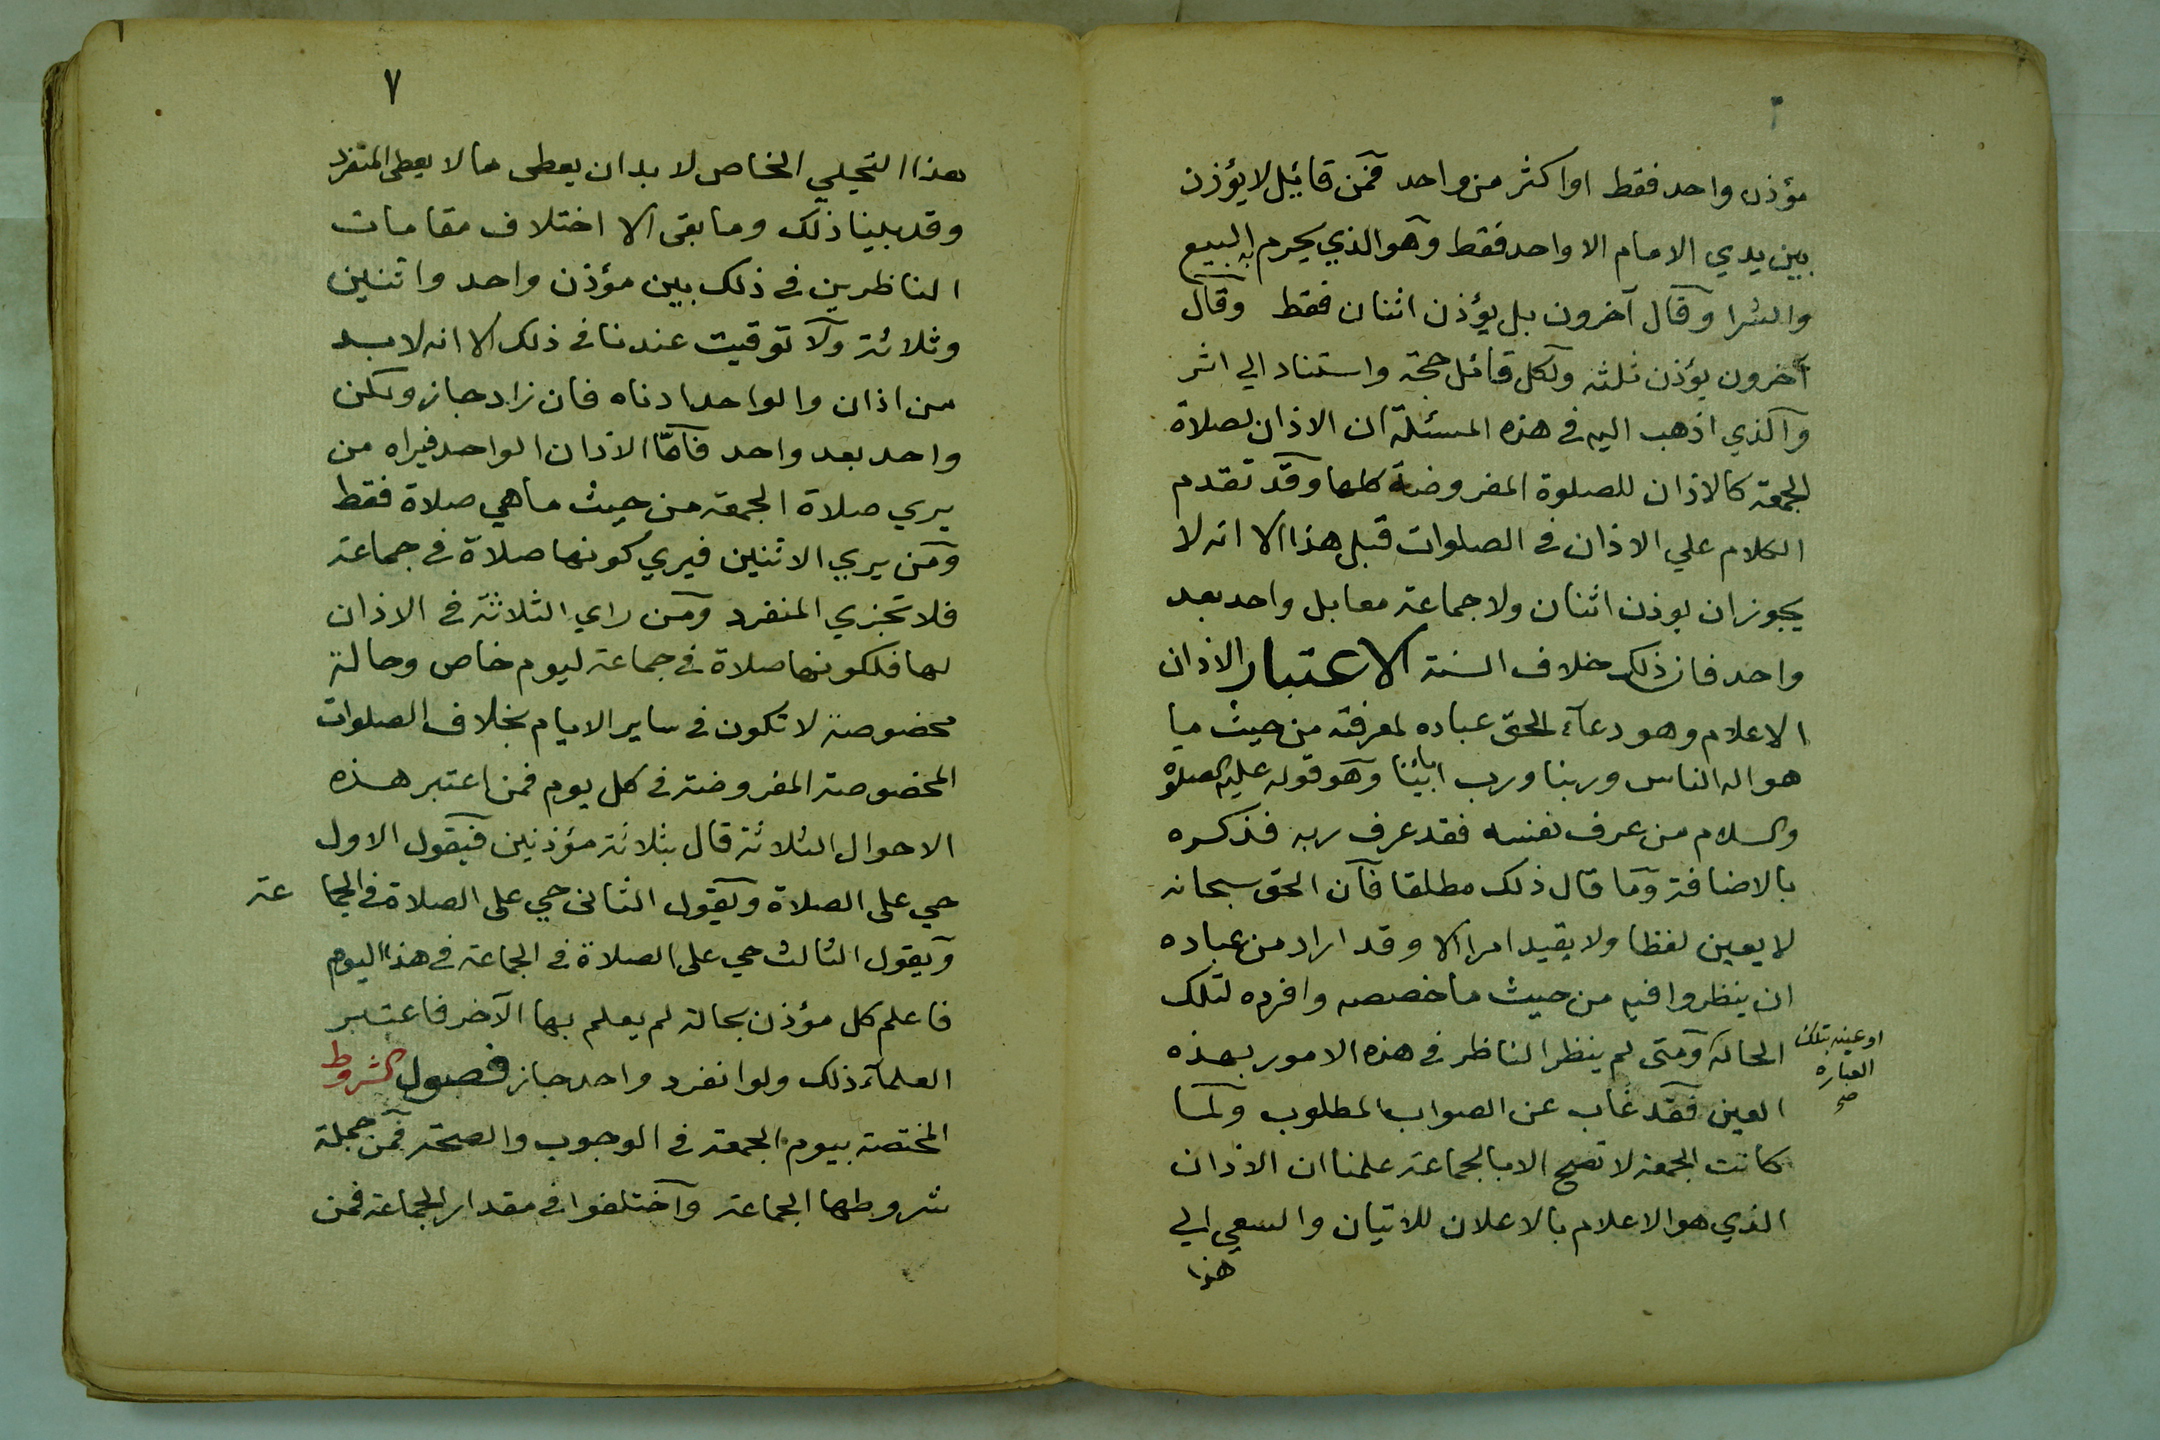 مؤذن واحد فقط او اكثر من واحد فمن قائيل لا يؤذن
بين يدي الامام الا واحد فقط وهو الذي يحرم به البيع
والشرا وقال آخرون بل يؤذن اثنان فقط وقال
آخرون يؤذن ثلثه ولكل قائل حجة واستناد الي اثر
والذي اذهب اليه في هذه المسئلة ان الاذان لصلاة
الجمعة كالاذان للصلوة المفروضة كلها وقد تقدم
الكلام علي الاذان في الصلوات قبل هذا الا انه لا
يجوز ان يوذن اثنان ولا جماعة معا بل واحد بعد
واحد فان ذلك خلاف السنة الاعتبار الاذان
الاعلام وهو دعاء الحق عباده لمعرفته من حيث ما
هو اله الناس وربنا ورب ابائنا وهو قوله عليه الصلوة
والسلام من عرف نفسه فقد عرف ربه فذكره
بالاضافة وما قال ذلك مطلقا فان الحق سبحانه
لا يعين لفظا ولا يقيد امرا الا وقد اراد من عباده
ان ينظروا فيه من حيث ما خصصه وافرده لتلك
الحالة ومتى لم ينظر الناظر في هذه الامور بهذه
او عينه بتلك
العباره
صح
العين فقد غاب عن الصواب المطلوب ولما
كانت الجمعة لا تصح الا بالجماعة علمنا ان الاذان
الذي هو الاعلام بالاعلان للاتيان والسعي الي
هذا
٧
هذا التجلي الخاص لا بد ان يعطى ما لا يعطى المنفرد
وقد بينا ذلك وما بقى الا اختلاف مقامات
الناظرين في ذلك بين مؤذن واحد واثنين
وثلاثة ولا توقيت عندنا في ذلك الا انه لا بد
من اذان والواحد ادناه فان زاد جاز ولكن
واحد بعد واحد فاما الاذان الواحد فيراه من
يري صلاة الجمعة من حيث ما هي صلاة فقط
ومن يري الاثنين فيري كونها صلاة في جماعة
فلا تجزي المنفرد ومن راي الثلاثة في الاذان
لها فلكونها صلاة في جماعة ليوم خاص وحالة
مخصوصة لا تكون في ساير الايام بخلاف الصلوات
المخصوصة المفروضة في كل يوم فمن اعتبر هذه
الاحوال الثلاثة قال بثلاثة مؤذنين فيقول الاول
حي على الصلاة ويقول الثاني حي على الصلاة في الجماعة
ويقول الثالث حي على الصلاة في الجماعة في هذا اليوم
فاعلم كل مؤذن بحالة لم يعلم بها الآخر فاعتبر
العلماء ذلك ولو انفرد واحد جاز فصول الشروط
المختصة بيوم الجمعة في الوجوب والصحة فمن جملة
شروطها الجماعة واختلفوا في مقدار الجماعة فمن